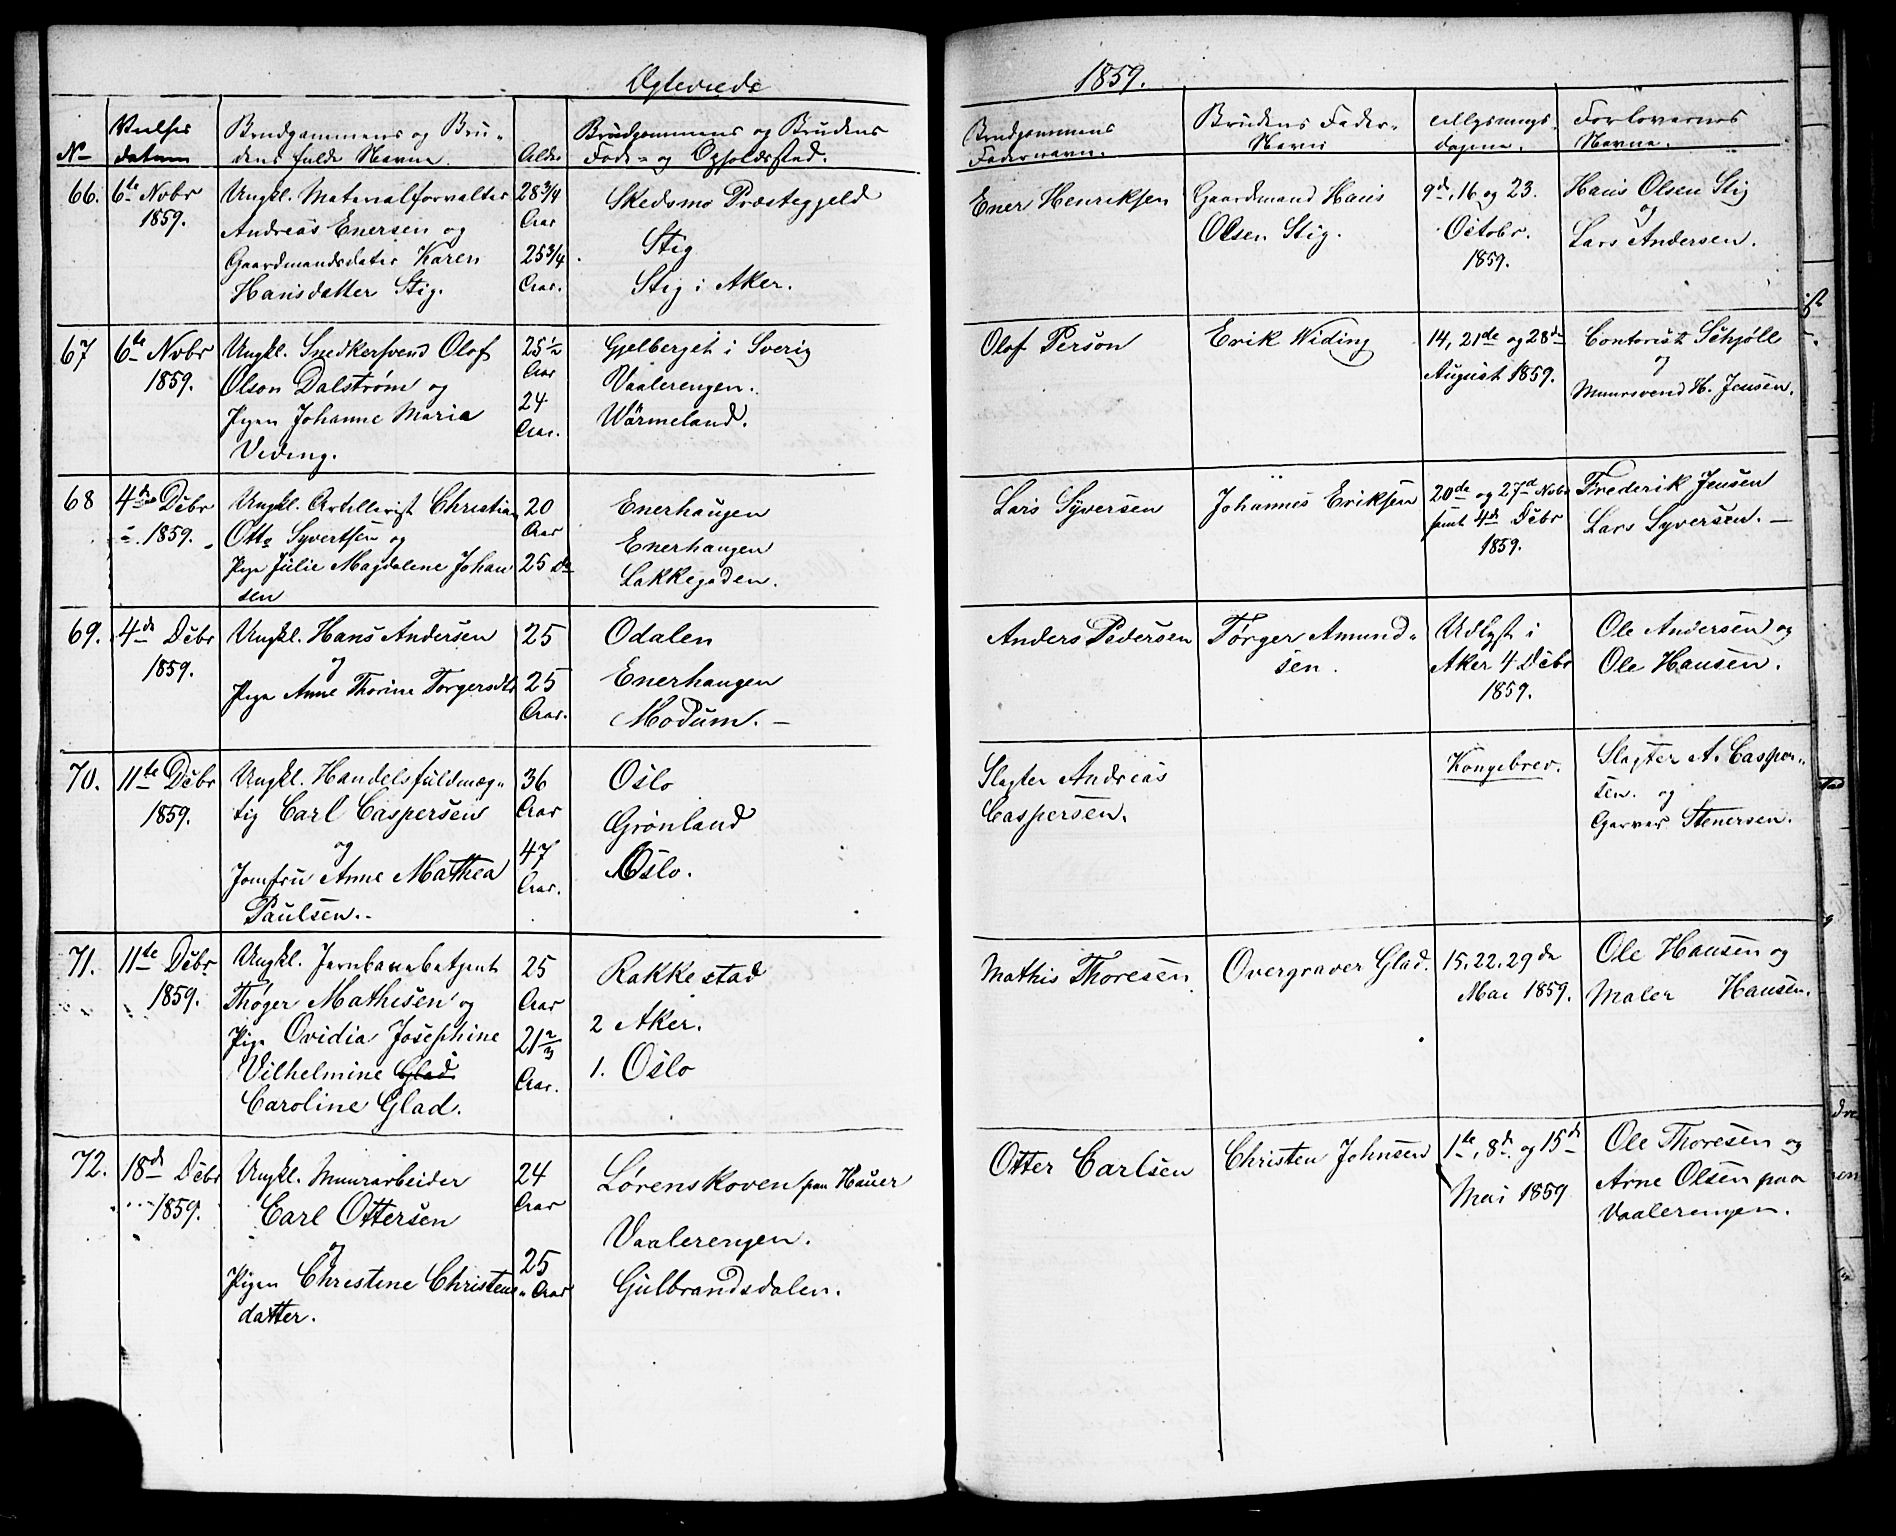 Ægteviede
1859.
No
Vielses
datum
Brudgommens og Bru-
dens fulde Navne.
Alder
Brudgommens og Brudens
Føde- og Opholdssted.
Brudgommens
Fadernavn.
Brudens Fader-
Navn
Lysnings-
dagene.
Forlovernes
Navne.
66.
6te Nvbr
1859.
Ungkl. Materialforvalter
Andreas Enersen og
Gaardmandsdatter Karen
Hansdatter Stig.
28 3/4
Aar
25 3/4
Aar.
Skedsmo Præstegjeld
Stig
Stig i Aker.
Ener Henriksen
Gaardmand Hans
Olsen Stig.
9de, 16 og 23.
Octobr.
1859.
Hans Olsen Stig
og
Lars Andersen.
67
6te Nvbr
1859.
Ungkl. Snedkersvend Olof
Olson Dalstrøm og
Pigen Johanne Maria
Veding.
25 1/2
Aar
24
Aar.
Gjelberget i Sverig
Vaalerengen.
Wärmeland.
Olof Person
Erik Widing
14, 21de og 28de
August 1859.
Contorist Schjöll
og
Muursvend H. Jensen.
68
4de Dcbr
1859.
Ungkl. Artillerist Christian
Otto Syvertsen og
Pige Julie Magdalene Johan
sen
20
Aar
25 do
Enerhaugen
Enerhaugen
Lakkegaden.
Lars Syversen
Johannes Eriksen
20de og 27de Nvbr
samt 4de Dcbr
1859.
Frederik Jensen
Lars Syversen. —
69.
4de Dcbr
1859.
Ungkl. Hans Andersen
og
Pige Anne Thorine Torgersdtr
25
25
Aar.
Odalen
Enerhaugen
Modum. —
Anders Pedersen
Tørger Amund-
sen.
Udlyst i
Aker 4 Dcbr
1859.
Ole Andersen og
Ole Hansen.
70.
11te Dcbr
1859.
Ungkl. Handelsfuldmæg-
tig Carl Caspersen
og
Jomfru Anne Mathea
Paulsen.
36
Aar
47
Aar.
Oslo
Grønland
Oslo.
Slagter Andreas
Caspersen.
Kongebrev.
Slagter A. Casper-
sen. og
Garver Stenersen.
71.
11te Dcbr
1859.
Ungkl. Jernbanebetjent
Thøger Mathisen og
Pige Ovidia Josephine
Vilhelmine Glad
Caroline Glad.
25
Aar
21 2/3
Aar.
Rakkestad
2 Aker.
1. Oslo
Mathis Thoresen
Overgraver Glad.
15, 22, 29de
Mai 1859.
Ole Hansen og
Maler Hansen.
72.
18de Dcbr
1859.
Ungkl. Muurarbeider
Carl Ottersen
og
Pigen Christine Christens-
datter.
24
Aar
25
Aar
Lørenskoven paa Hauer
Vaalerengen.
Gulbrandsdalen.
Otter Carlsen
Christen Johnsen
1te, 8de og 15de
Mai 1859
Ole Thoresen og
Arne Olsen paa
Vaalerengen.